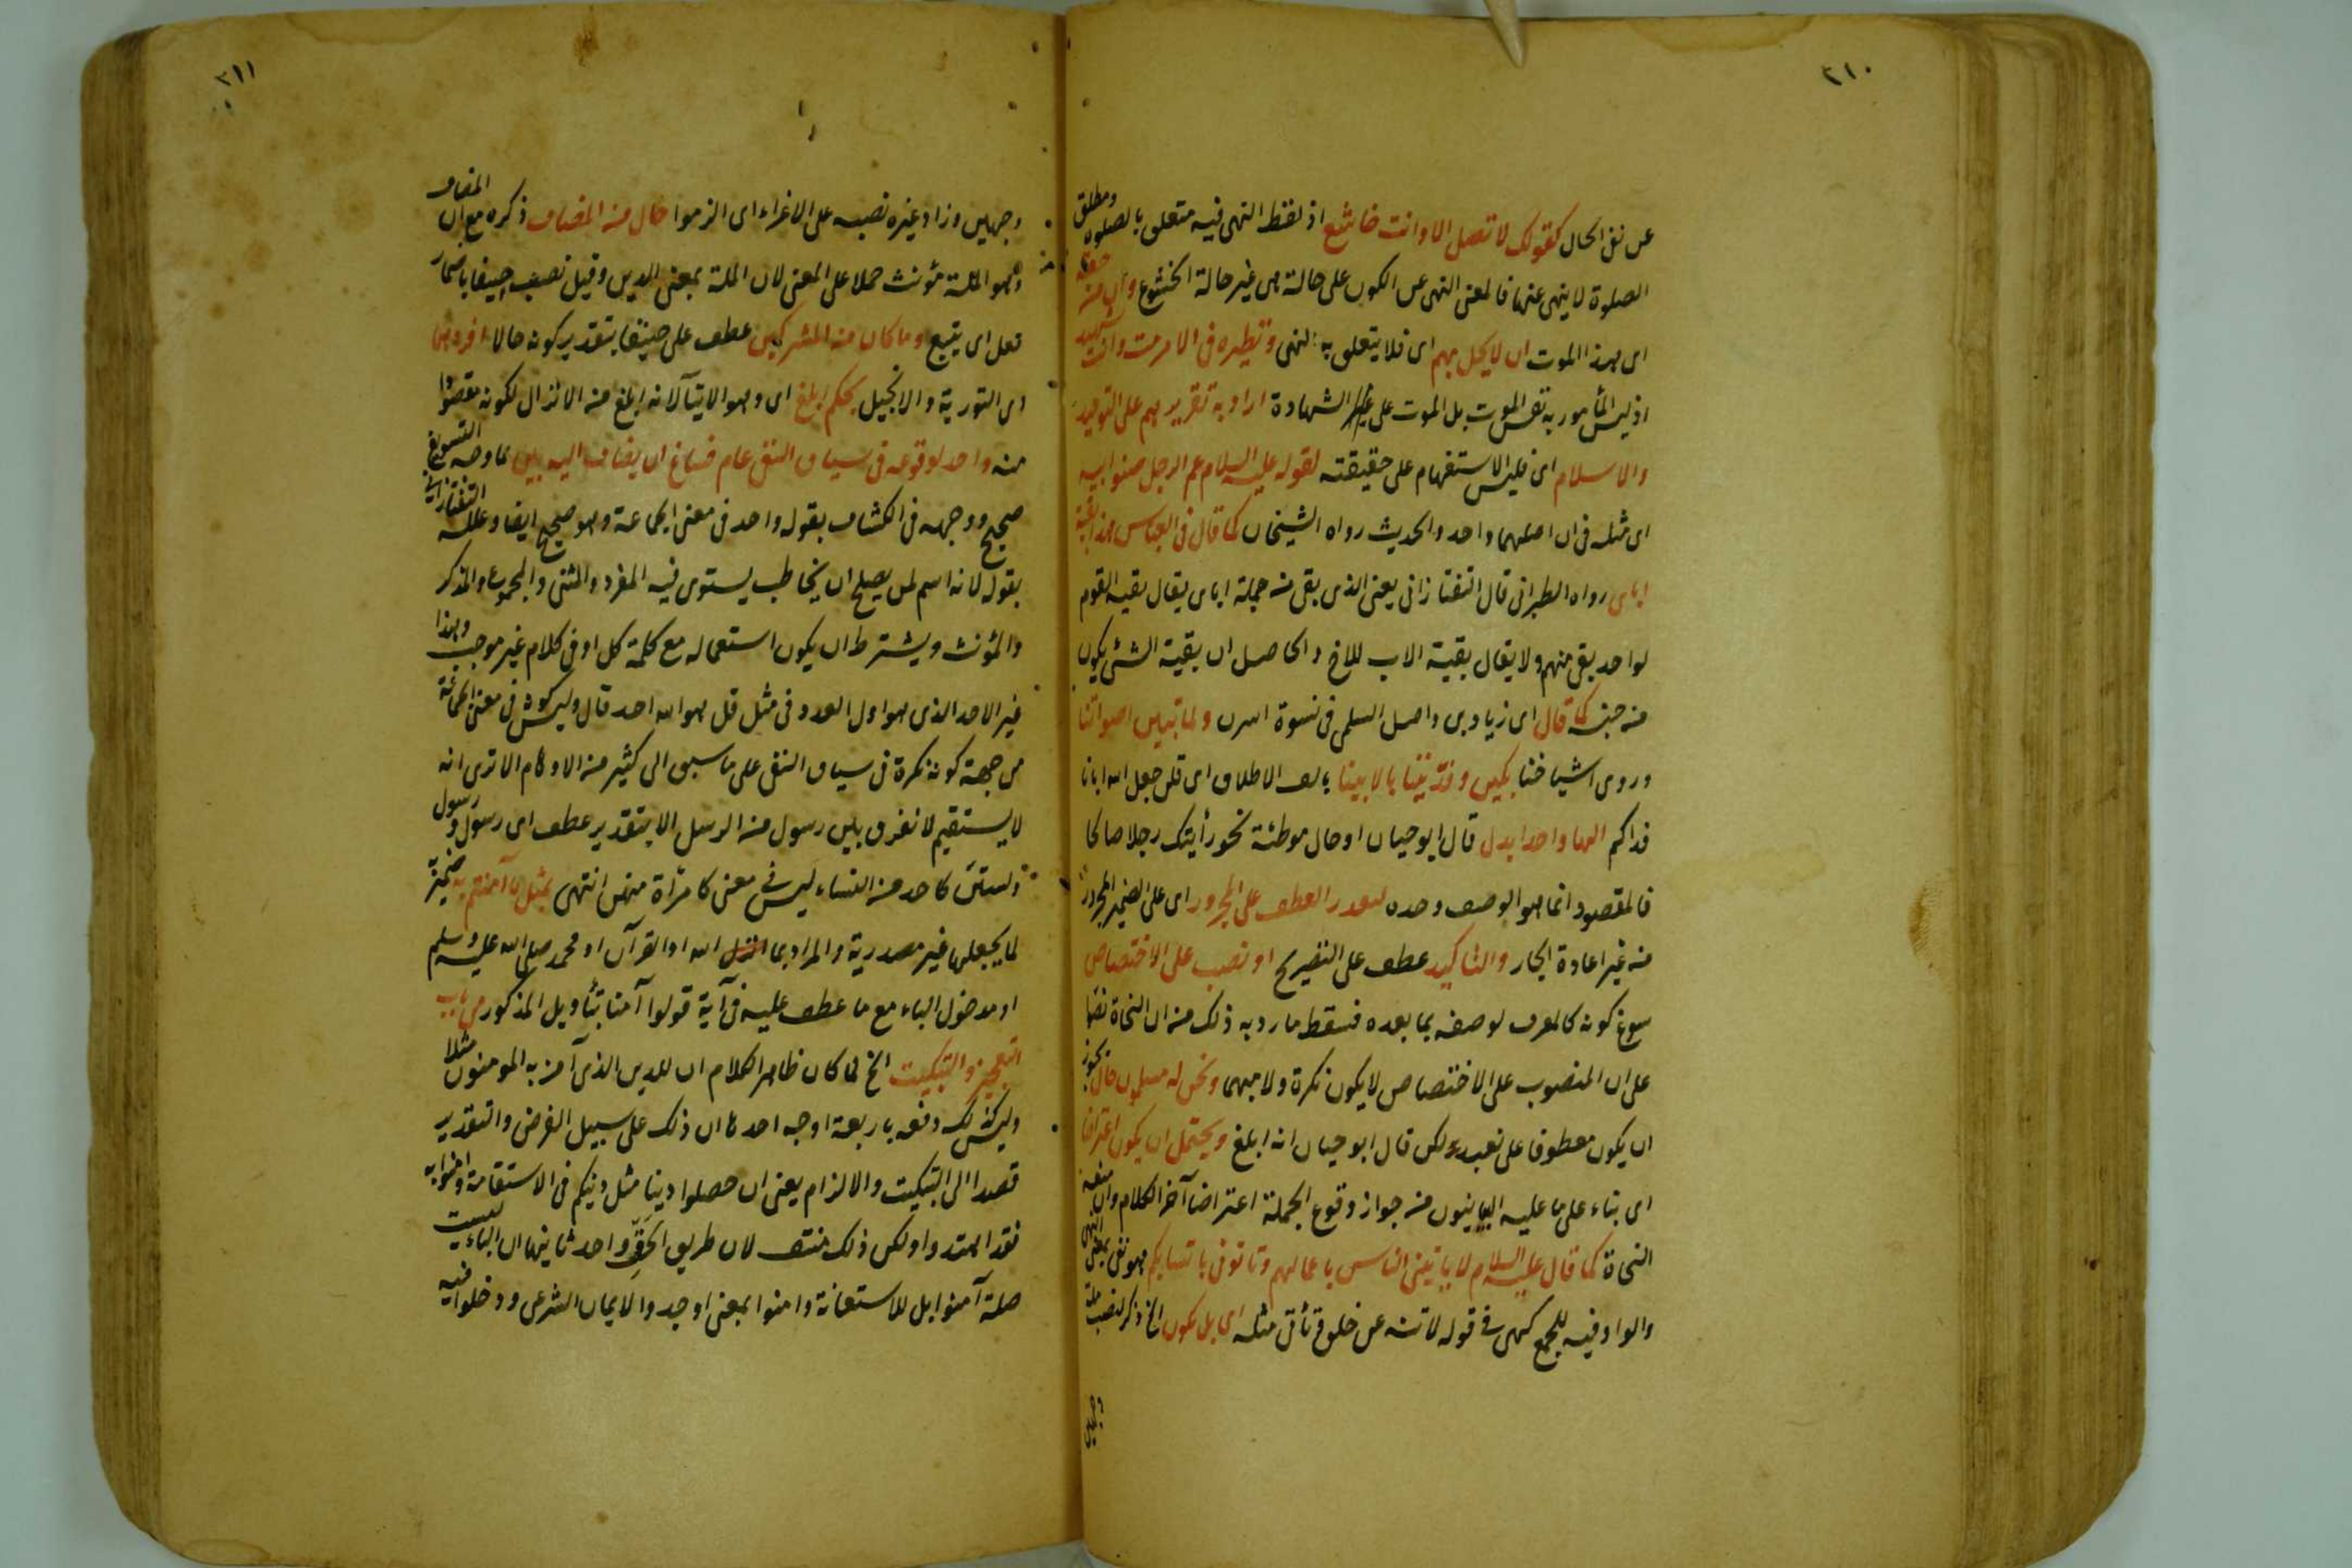 ٢١٠
عن نفى الحال كقولك لا تصل الا وانت خاشع اذ لفظ النهى فيه متعلق بالصلوة ومطلق
الصلوة لا ينهى عنها فالمعنى النهى عن الكون على حالة هى غير حالة الخشوع وان من حقه
اى بهذا الموت ان لا يحل بهم اى فلا يتعلق به النهى ونظيره فى الامر مت وانت شهيد
اذ ليس المأمور به نفس الموت بل الموت على الشهادة اراد به تقريرهم على التوحيد
والاسلام اى فليس الاستفهام على حقيقته لقوله عليه السلام عم الرجل صنو ابيه
اى مثله فى ان اصلهما واحد والحديث رواه الشيخان كما قال فى العباس هذا بقية
اباى رواه الطبرانى قال التفتازانى يعنى الذى بقى من جملة اباى يقال بقية القوم
لواحد بقى منهم ولا يقال بقية الاب للاخ والحاصل ان بقية الشئ يكون
من جنسه كما قال اى زياد بن واصل السلمى فى نسوة اسرن ولما تبين اصواتنا
وروى اشياخنا بكين وفديننا بالابينا بالف الاطلاق اى قلن جعل الله ابانا
فداكم الها واحدا بدل قال ابو حيان او حال موطئة نحو رأيتك رجلا صالحا
فالمقصود انما هو الوصف وحده لتعذر العطف على المجرور اى على الضمير المجرور
من غير اعادة الجار والتاكيد عطف على التصريح او نصب على الاختصاص
سوغ كونه كالمعرف لوصفه بما بعده فسقط ما رد به ذلك من ان النحاة نصوا
على ان المنصوب على الاختصاص لا يكون نكرة ولا مبهما ونحن له مسلمون حال يجوز
ان يكون معطوفا على نعبد ولكن قال ابو حيان انه ابلغ ويحتمل ان يكون اعتراضا
اى بناء على ما عليه البيانيون من جواز وقوع الجملة اعتراضا آخر الكلام وان منعه
النحاة كما قال عليه السلام لا ياتينى الناس باعمالهم وتاتونى بانسابكم هو نفى بمعنى النهى
والواو فيه للجمع كهى فى قوله لا تنه عن خلق وتأتى مثله اى بل نكون الخ ذكر لنصب ملة
وجهين
٢١١
وجهين وزاد غيره نصبه على الاغراء اى الزموا حال من المضاف ذكره مع ان المضاف
وهو الملة مؤنث حملا على المعنى لان الملة بمعنى الدين وقيل نصب حنيفا باضمار
فعل اى يتبع وما كان من المشركين عطف على حنيفا بتقدير كونه حالا افردهما
اى التورية والانجيل بحكم ابلغ اى وهو الايتاء لانه ابلغ من الانزال لكونه مقصودا
منه واحد لوقوعه فى سياق النفى عام فساغ ان يضاف اليه بين ما وجه التسويغ
صحيح ووجهه فى الكشاف بقوله واحد فى معنى الجماعة وهو صحيح ايضا وعلله التفتازانى
بقوله لانه اسم لمن يصلح ان يخاطب يستوى فيه المفرد والمثنى والمجموع والمذكر
والمؤنث ويشترط ان يكون استعماله مع كلمة كل او فى كلام غير موجب وهذا
غير الاحد الذى هو اول العدد فى مثل قل هو الله احد قال وليس كونه فى معنى الجماعة
من جهة كونه نكرة فى سياق النفى على ما سبق الى كثير من الاوهام الا ترى انه
لا يستقيم لا نفرق بين رسول من الرسل الا بتقدير عطف اى رسول ورسول
ولستن كاحد من النساء ليس فى معنى كامرأة منهن انتهى بمثل ما آمنتم به
لما يجعلها غير مصدرية والمراد بما الله او القرآن او محمد صلى الله عليه وسلم
او مدخول الباء مع ما عطف عليه فى آية قولوا آمنا بتأويل المذكور من باب
التعجيز والتبكيت الخ لما كان ظاهر الكلام ان للدين الذى آمن به المومنون مثلا
وليس كذلك دفعه باربعة اوجه احدها ان ذلك على سبيل الفرض والتقدير
قصدا الى التبكيت والالزام يعنى ان حصلوا دينا مثل دينكم فى الاستقامة وآمنوا به
فقد اهتدوا ولكن ذلك منتف لان طريق الحق واحد ثانيها ان الباء ليست
صلة آمنوا بل للاستعانة وامنوا بمعنى اوجدوا الايمان الشرعى ودخلوا فيه